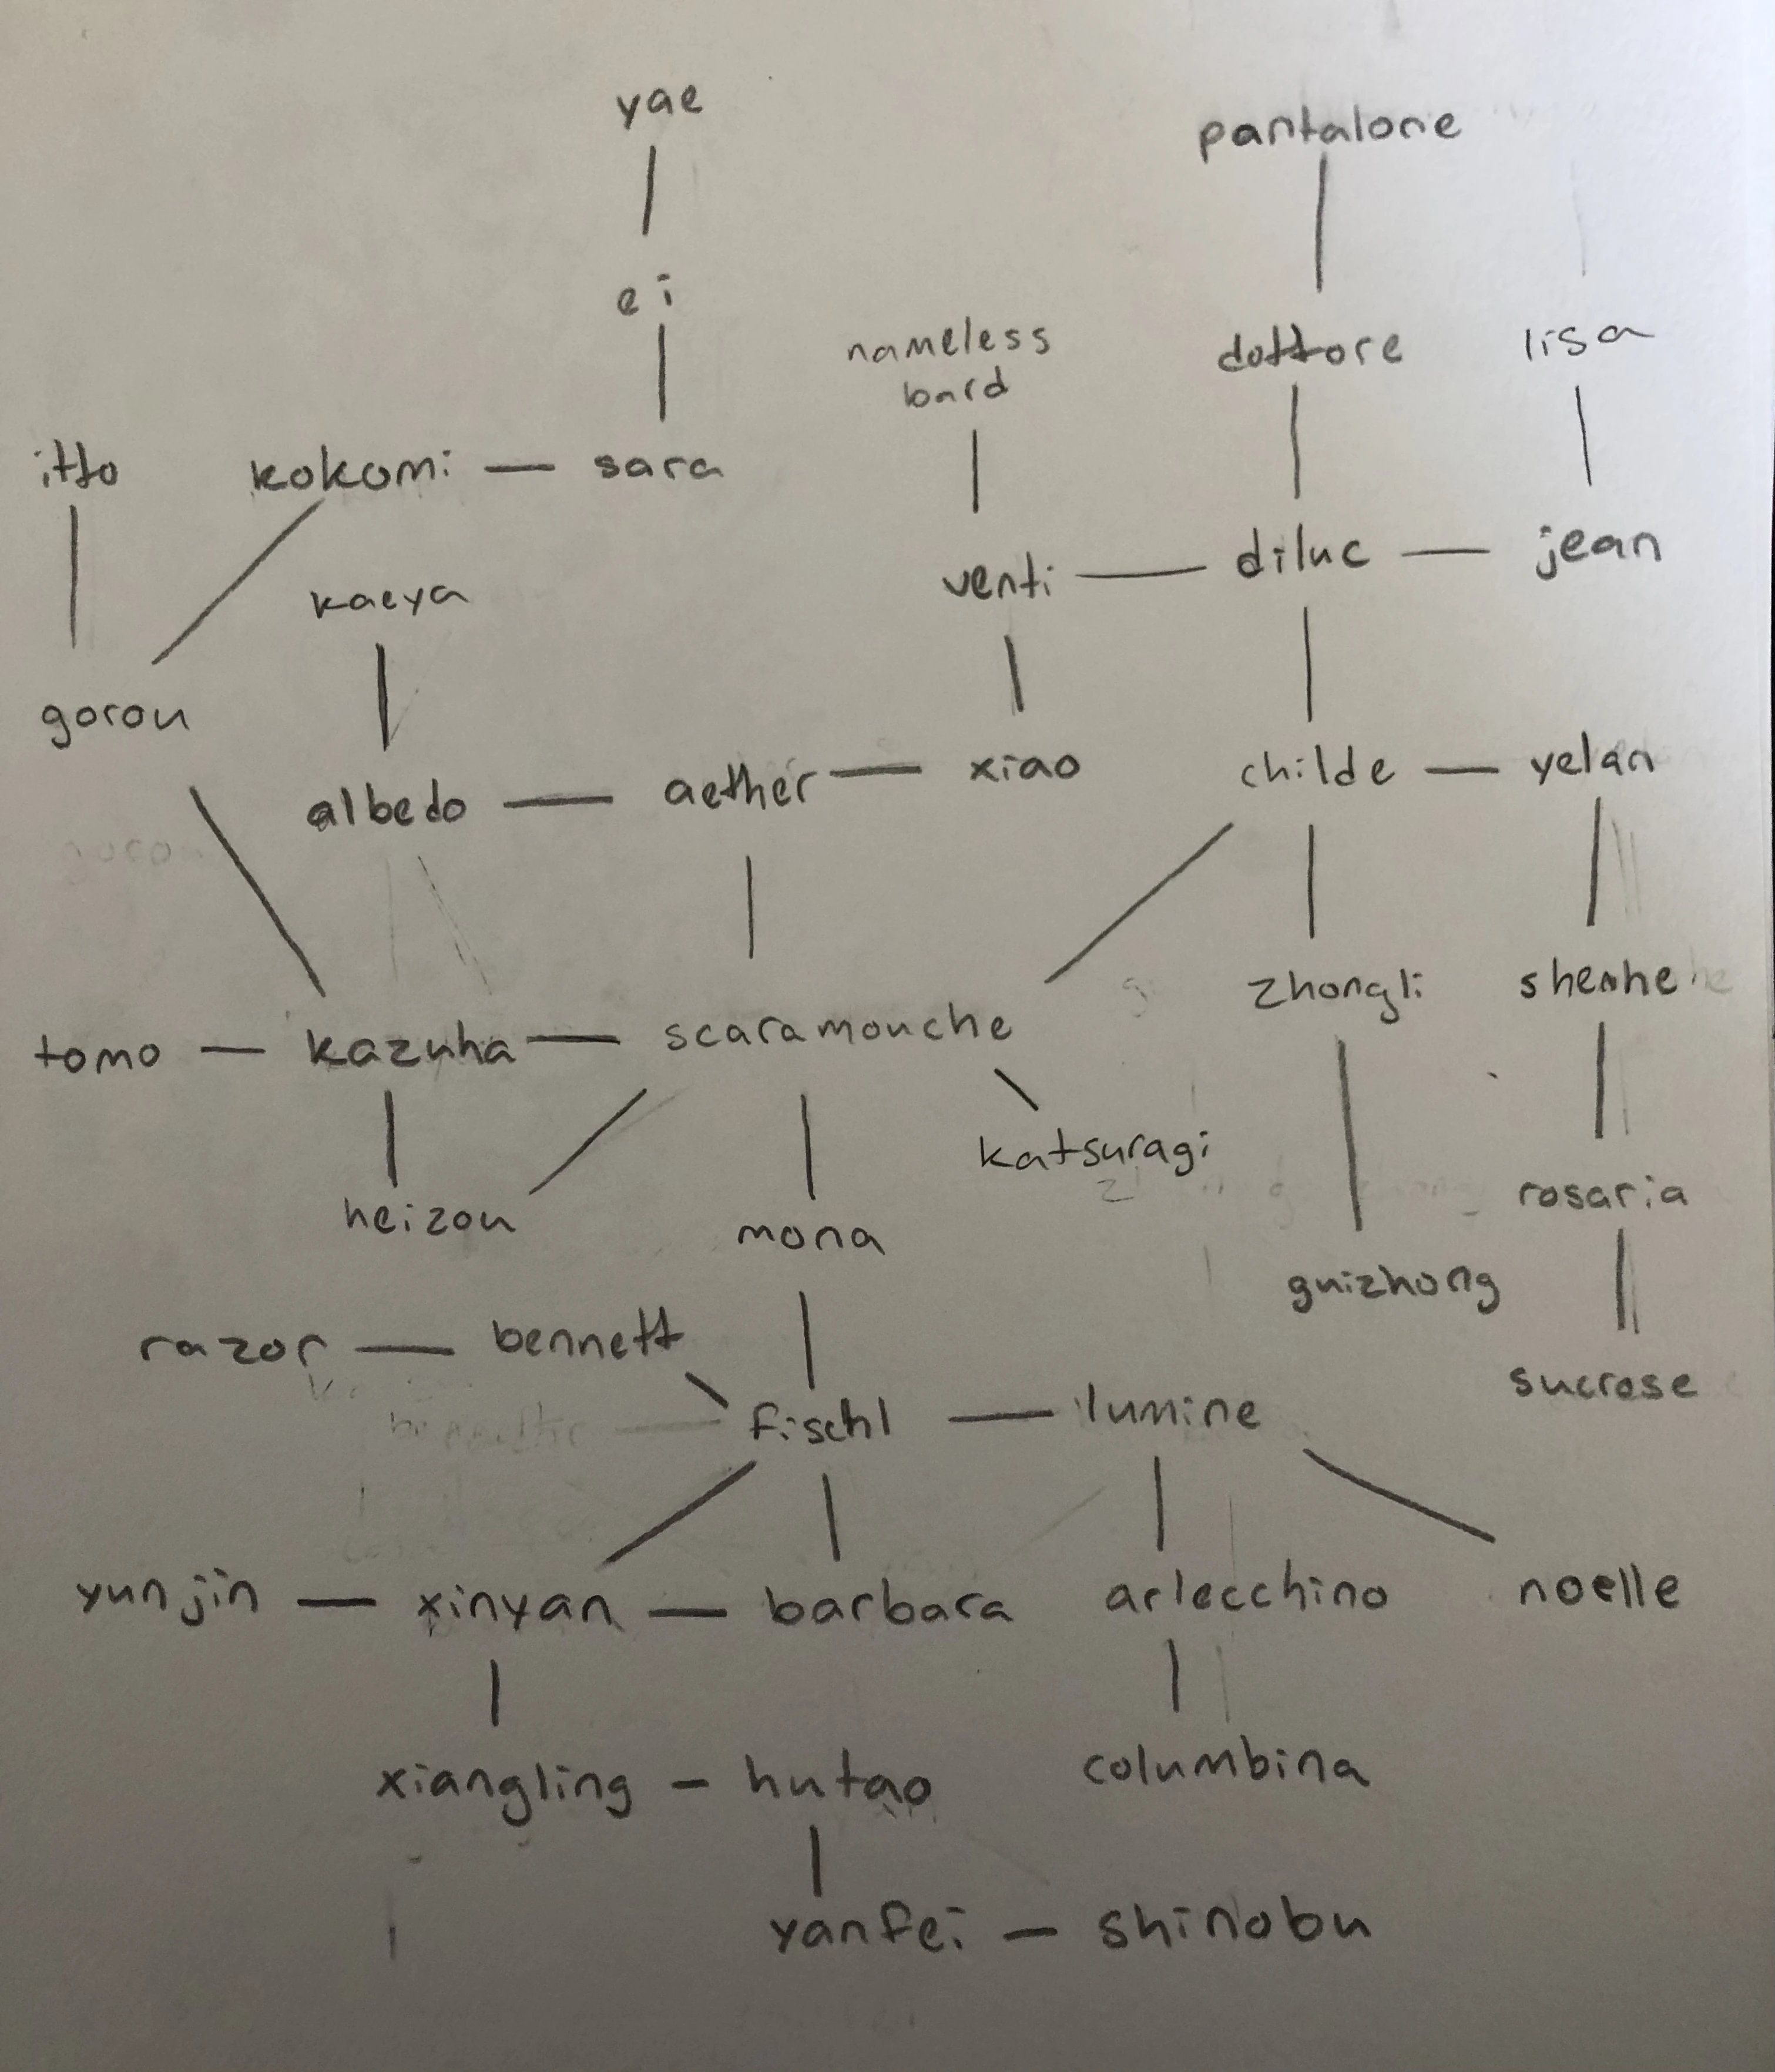 yae
pantalone
ei
nameless
bard
dottore
lisa
itto
kokomi — sara
venti — diluc — jean
kaeya
gorou
albedo — aether — xiao
childe — yelan
zhongli
shenhe
tomo — kazuha — scaramouche
katsuragi
heizou
mona
rosaria
guizhong
razor — bennett
sucrose
fischl — lumine
yunjin — xinyan — barbara
arlecchino
noelle
xiangling - hutao
columbina
yanfei — shinobu